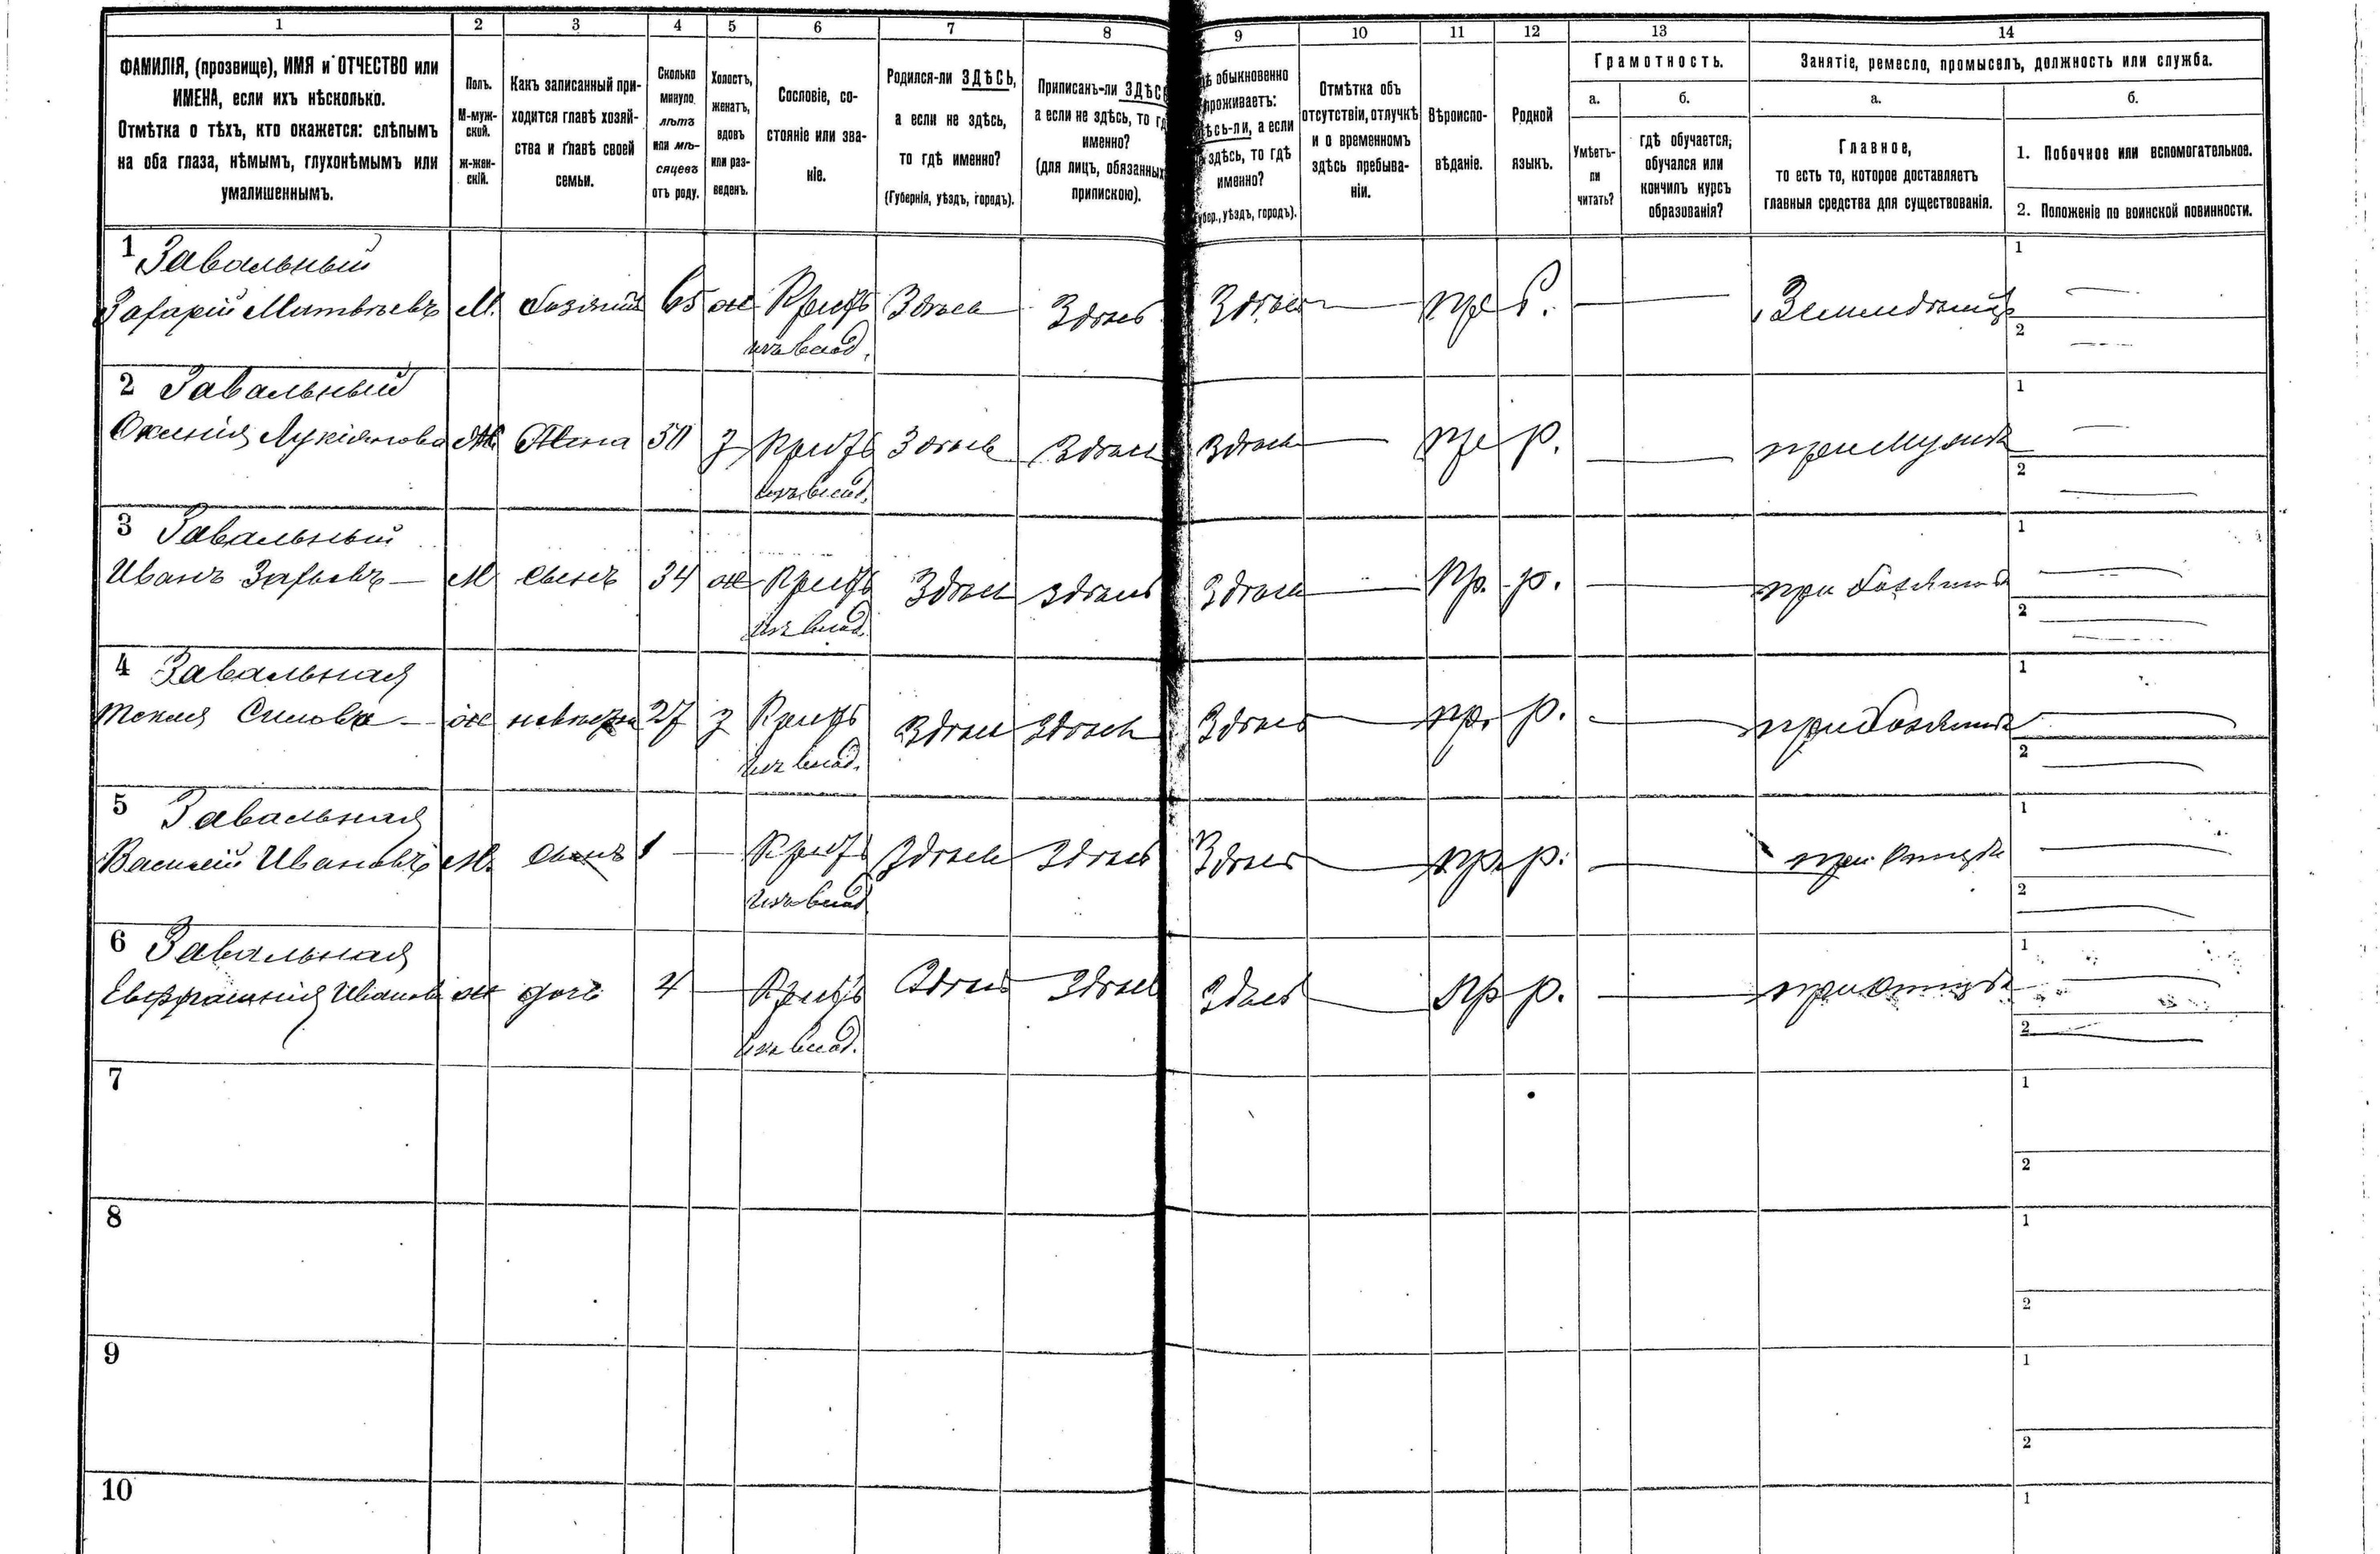 1 2 3 4 5 6 7 8 9 10 11 12 13 14
ФАМИЛІЯ, (прозвище), ИМЯ и ОТЧЕСТВО или
ИМЕНА, если ихъ нѣсколько.
Отмѣтка о тѣхъ, кто окажется: слѣпымъ
на оба глаза, нѣмымъ, глухонѣмымъ или
умалишеннымъ.
Полъ.
М-муж-
ской.
ж-жен-
скій.
Какъ записанный при-
ходится главѣ хозяй-
ства и главѣ своей
семьи.
Сколько
минуло
лѣтъ
или мѣ-
сяцевъ
отъ роду.
Холостъ,
женатъ,
вдовъ
или раз-
веденъ.
Сословіе, со-
стояніе или зва-
ніе.
Родился-ли ЗДѢСЬ,
а если не здѣсь,
то гдѣ именно?
(Губернія, уѣздъ, городъ).
Приписанъ-ли ЗДѢС
а если не здѣсь, то гд
именно?
(для лицъ, обязанных
припискою).
ѣ обыкновенно
проживаетъ:
ѣсь-ли, а если
здѣсь, то гдѣ
именно?
убер., уѣздъ, городъ).
Отмѣтка объ
отсутствіи, отлучкѣ
и о временномъ
здѣсь пребыва-
ніи.
Вѣроиспо-
вѣданіе.
Родной
языкъ.
Грамотность.
а.
Умѣетъ-
ли
читать?
б.
гдѣ обучается,
обучался или
кончилъ курсъ
образованія?
Занятіе, ремесло, промыселъ, должность или служба.
а.
Главное,
то есть то, которое доставляетъ
главныя средства для существованія.
б.
1. Побочное или вспомогательное.
2. Положеніе по воинской повинности.
1 Завальный
Захарій Матвѣевъ М. хозяинъ 65 ж Крест Здѣсь Здѣсь Здѣсь — пр Р. — Земледѣлецъ 1 —
изъ влад. 2 —
2 Завальный
Ксенія Лукіянова Ж Жена 50 з Крест Здѣсь Здѣсь Здѣсь — пр р. — при мужѣ 1 —
изъ влад. 2 —
3 Завальный
Иванъ — М сынъ 34 ж Крест Здѣсь здѣсь Здѣсь — пр. р. — при хозяинѣ 1 —
изъ влад. 2 —
4 Завальная
Текля — ж невѣстка 27 з Крест Здѣсь Здѣсь Здѣсь — пр. р. — при хозяинѣ 1 —
изъ влад. 2 —
5 Завальная
Василій Ивановъ М. сынъ 1 — Крест Здѣсь Здѣсь Здѣсь — пр. р. — при отцѣ 1 —
изъ влад. 2 —
6 Завальная
Евфросинія Иванова ж дочь 4 — Крест Здѣсь Здѣсь Здѣсь — пр р. — при отцѣ 1 —
изъ влад. 2 —
7 1
2
8 1
2
9 1
2
10 1